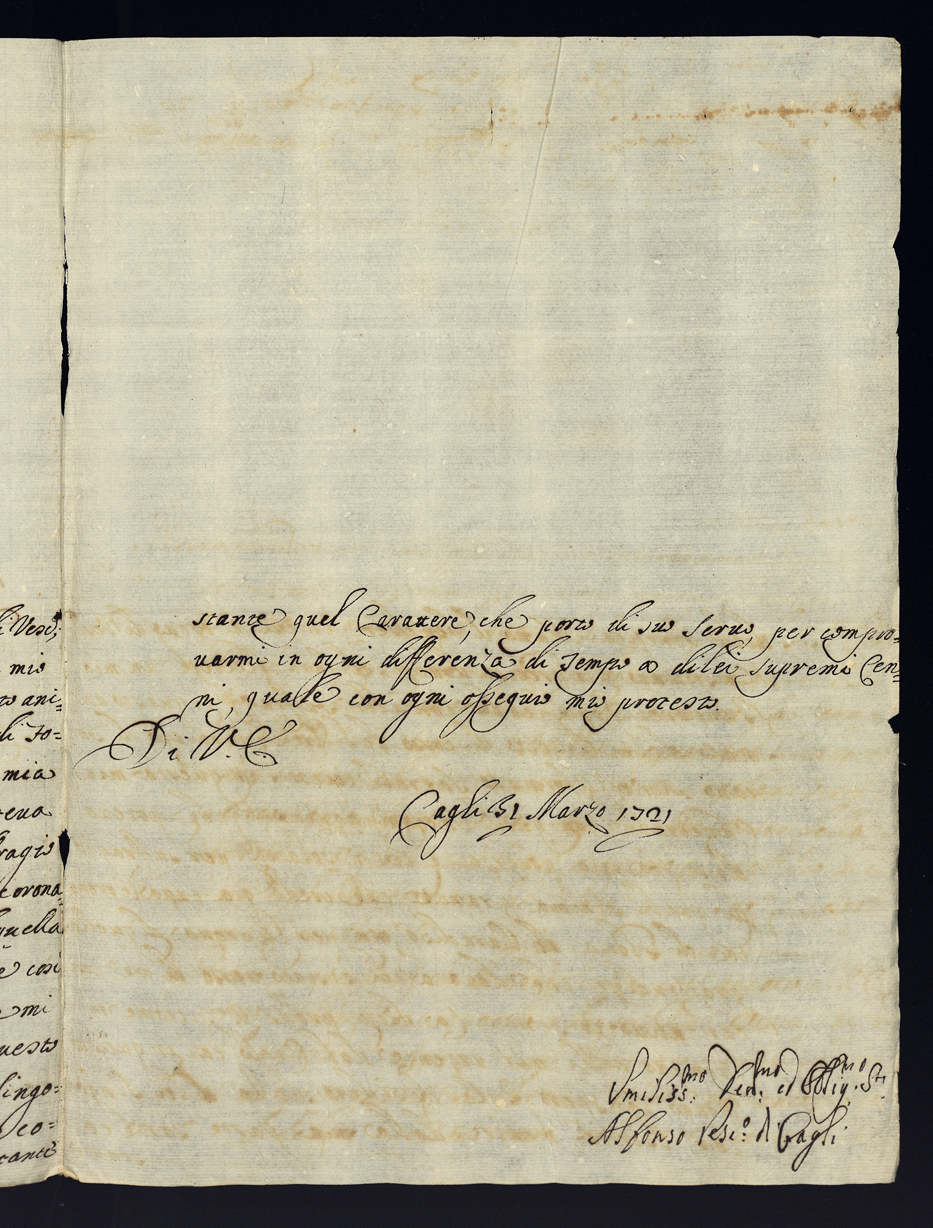 li Vesc:
mio
ani=
di To=
mia
ragio
corona
quella
e così
mi
questo
lingo=
co=
stante quel Carattere, che porto di suo servo, per compro=
uarmi in ogni differenza di Tempo a di lei supremi Cen=
ni, quale con ogni ossequio mio protesto.
Di V. E.
Cagli 31 Marzo 1721
Vmiliss:mo Deu:mo ed Obblig:mo Se:
Alfonso Vesc:o di Cagli